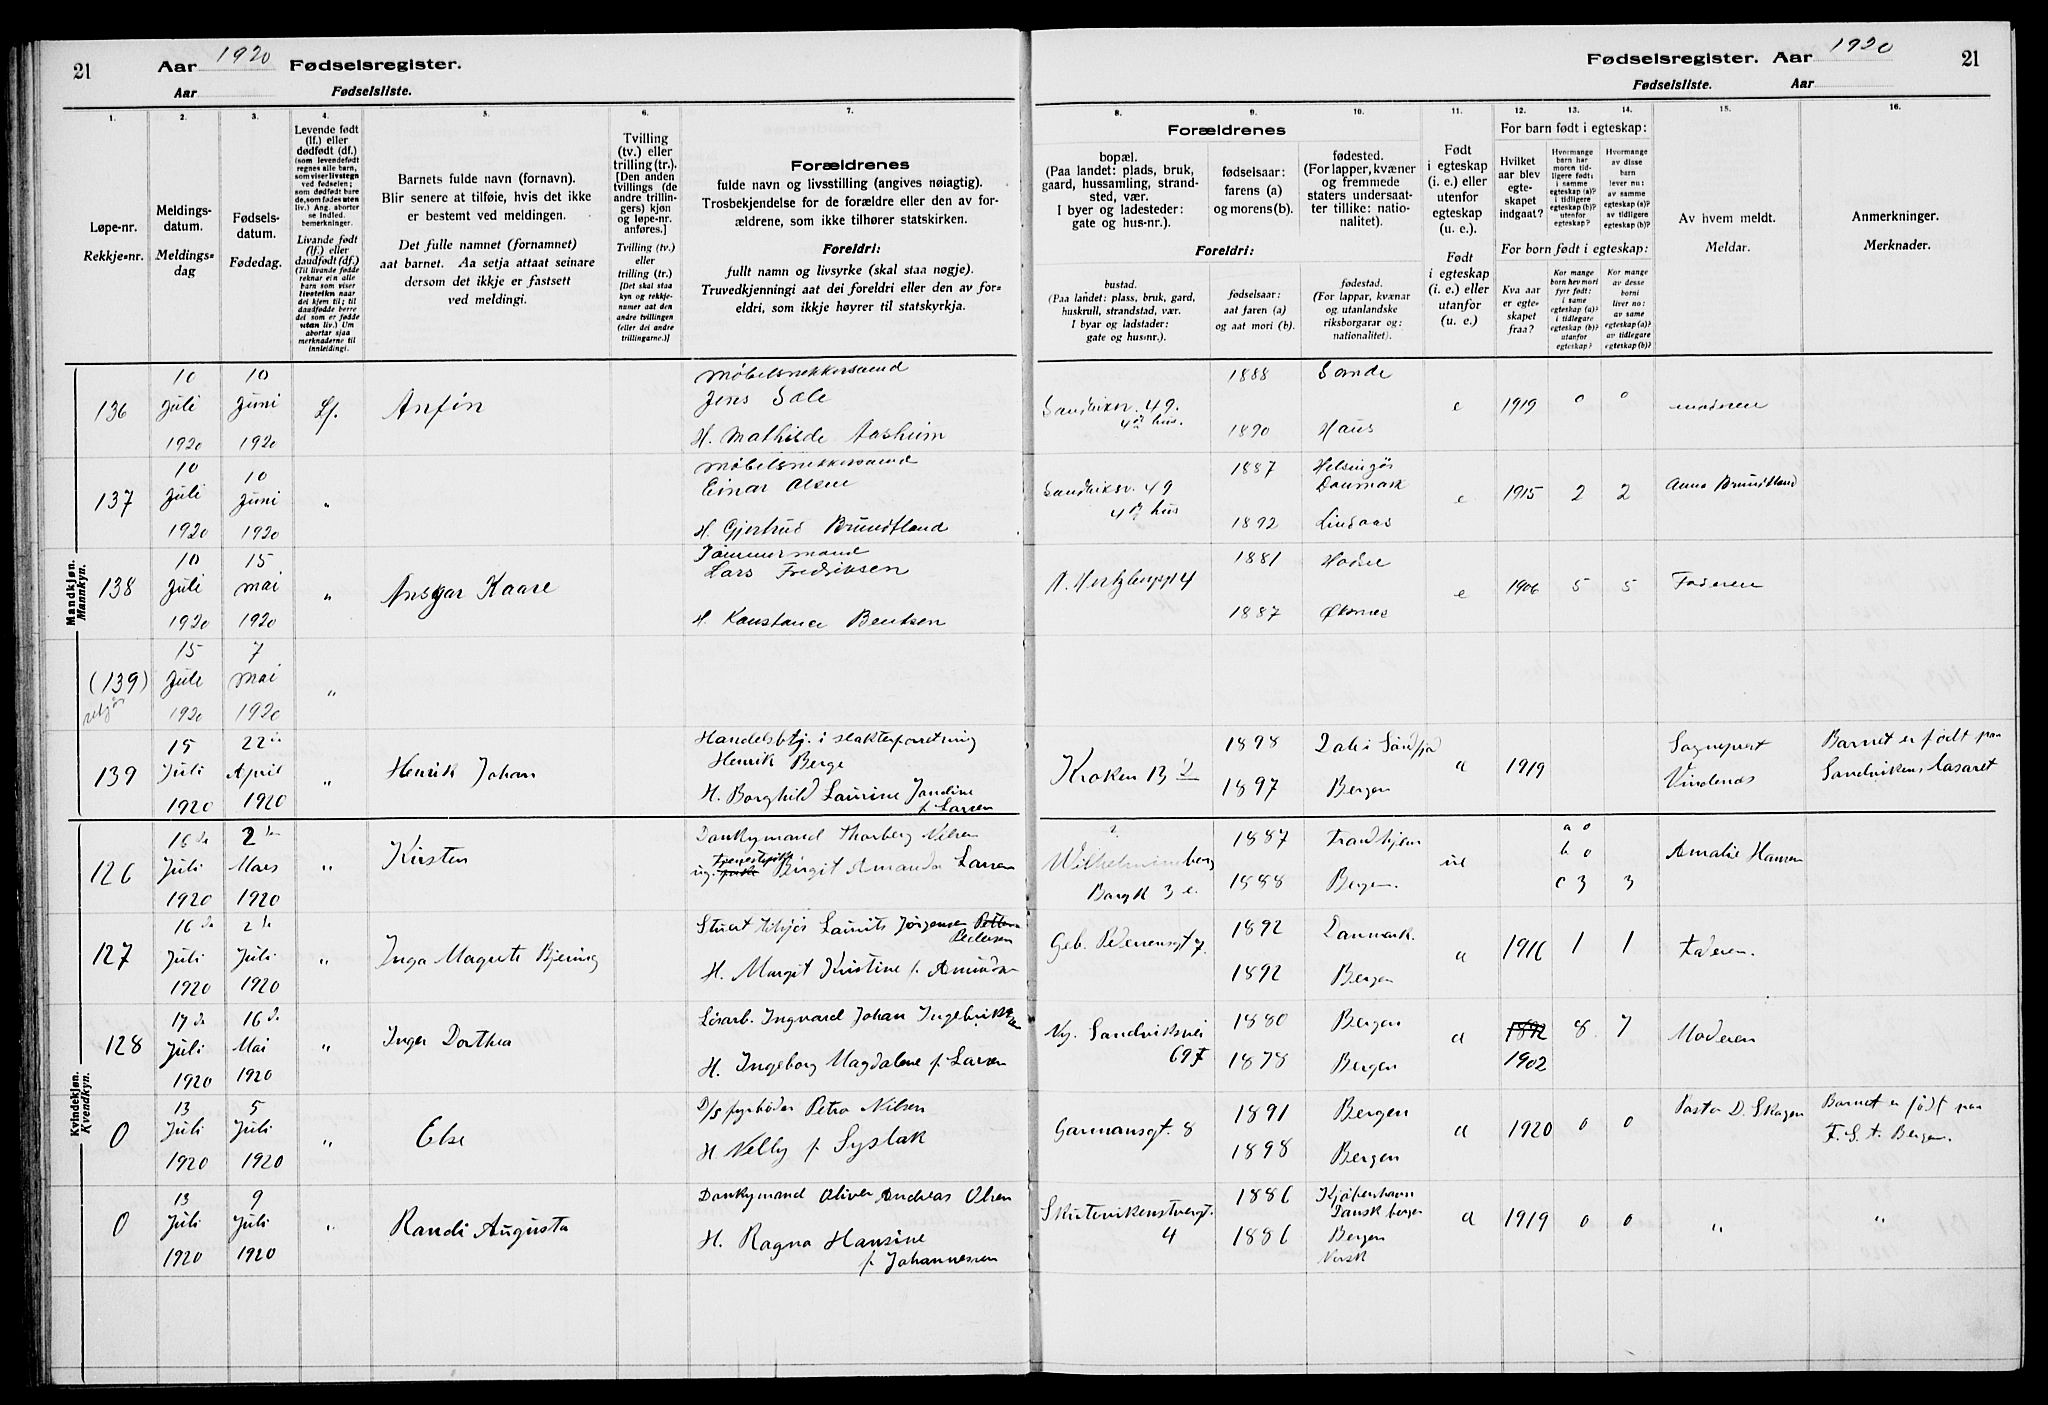 21
Aar 1920 Fødselsregister.
Aar Fødselsliste.
Fødselsregister. Aar 1920
21
Fødselsliste. Aar
1.
Løpe-nr.
Rekkje-nr.
2.
Meldings-
datum.
Meldings-
dag
3.
Fødsels-
datum.
Fødedag.
4.
Levende født
(lf.) eller
dødfødt (df.)
(som levendefødt
regnes alle barn,
som viser livstegn
ved fødselen;
som dødfødt bare
de, som fødes uten
liv.) Ang. aborter
se indled.
bemerkninger.
Livande født
(lf.) eller
daudfødt (df.)
(Til livande fødde
reknar ein alle
barn som viser
livsteikn naar
dei kjem til; til
daudfødde berre
dei som er fødde
utan liv.) Um
abortar sjaa
merknaderne til
innleidingi.
5.
Barnets fulde navn (fornavn).
Blir senere at tilføie, hvis det ikke
er bestemt ved meldingen.
Det fulle namnet (fornamnet)
aat barnet. Aa setja attaat seinare
dersom det ikkje er fastsett
ved meldingi.
6.
Tvilling
(tv.) eller
trilling (tr.).
[Den anden
tvillings (de
andre trillin-
gers) kjøn
og løpe-nr.
anføres.]
Tvilling (tv.)
eller
trilling (tr.)
[Det skal staa
kyn og rekkje-
numer aat den
andre tvillingen
(eller dei andre
trillingarne.)]
7.
Forældrenes
fulde navn og livsstilling (angives nøiagtig).
Trosbekjendelse for de forældre eller den av for-
ældrene, som ikke tilhører statskirken.
Foreldri:
fullt namn og livsyrke (skal staa nøgje).
Truvedkjenningi aat dei foreldri eller den av for-
eldri, som ikkje høyrer til statskyrkja.
8.
Forældrenes
bopæl.
(Paa landet: plads, bruk,
gaard, hussamling, strand-
sted, vær.
I byer og ladesteder:
gate og hus-nr.).
Foreldri:
bustad.
(Paa landet: plass, bruk, gard,
huskrull, strandstad, vær.
I byar og ladstader:
gate og hus-nr.).
9.
fødselsaar:
farens (a)
og morens (b).
fødselsaar:
aat faren (a)
og aat mori (b).
10.
fødested.
(For lapper, kvæner
og fremmede
staters undersaat-
ter tillike: natio-
nalitet).
fødestad.
(For lappar, kvænar
og utanlandske
riksborgarar og:
nationalitet).
11.
Født
i egteskap
(i. e.) eller
utenfor
egteskap
(u. e.).
Født
i egteskap
(i. e.) eller
utanfor
egteskap
(u. e.).
12.
For barn født i egteskap:
Hvilket
aar blev
egte-
skapet
indgaat?
For born født i egteskap:
Kva aar
er egte-
skapet
fraa?
13.
Hvormange
barn har
moren tid-
ligere født:
i samme
egteskap (a)?
i tidligere
egteskap (b)?
utenfor
egteskap?
Kor mange
born hev mori
fyrr født:
i same
egteskap (a)?
i tidlegare
egteskap (b)?
utanfor
egteskap?
14.
Hvormange
av disse
barn
lever nu:
av samme
egteskap (a)?
av tidligere
egteskap (b)?
Kor mange
av desse
borni
liver no:
av same
egteskap (a)?
av tidlegare
egteskap (b)?
15.
Av hvem meldt.
Meldar.
16.
Anmerkninger.
Merknader.
Mandkjøn.
Mannkyn.
136 10 Juli 1920 10 Juni 1920 Lf. Anfin
Møbelsnekkersvend
Jens Sæle
H. Mathilde Aasheim
Sandviksv. 49.
4 hus.
1888 Sande
1890 Haus
e 1919 0 0 moderen
137 10 Juli 1920 10 Juni 1920 "
Møbelsnekkersvend
Einar Olsen
H. Gjertrud Brundtland
Sandviksv. 49
4 hus
1887 Helsingør Danmark
1892 Lindaas
e 1915 2 2 Anna Brundtland
138 10 Juli 1920 15 mai 1920 " Ansgar Kaare
Tømmermand
Lars Fredriksen
H. Konstance Bentsen
N. Hertzbergsgt 4
1881 Hadsel
1887 Øksnes
e 1906 5 5 Faderen
(139) 15 Juli 1920 7 mai 1920 "
139 15 Juli 1920 22 April 1920 " Henrik Johan
Handelsbtj. i slakterforretning
Henrik Berge
H. Borghild Laurine Jandine
f. Larsen
Kroken 13
1898 Dale i Søndfjord
1897 Bergen
e 1919
Sogneprest
Vindenes
Barnet er født paa
Sandvikens lasaret
Kvindekjøn.
Kvendkyn.
126 16 Juli 1920 2 Mars 1920 " Kirsten
Donkymand Thorberg Nilsen
ug. tjenestepike Birgit Amanda Larsen
Wilhelmineborg
1887 Trondhjem
1888 Bergen.
ue
a 0
b 0
c 3 3
Amalie Hansen
127 16 Juli 1920 2 Juli 1920 " Inga Magrete Bjerring
Stuert Laurits Jørgensen Pedersen
H. Margit Kristine f. Amundsen
Geb. Pedersensgt 7.
1892 Danmark.
1892 Bergen
e 1916 1 1 Faderen.
128 17 Juli 1920 16 Mai 1920 " Inger Dorthea
Løsarb. Ingvard Johan Ingebriktsen
H. Ingeborg Magdalene f. Larsen
Ny. Sandviksvei
69
1880 Bergen
1878 Bergen
e 1892 1902 8 7 Moderen
0 13 Juli 1920 5 Juli 1920 " Else
D/s fyrbøder Petro Nilsen
H. Nelly f. Systak
Garmansgt. 8
1891 Bergen
1898 Bergen
e 1920 0 0 Pastor D. Skagen
Barnet er født paa
F. S. A. Bergen.
0 13 Juli 1920 9 Juli 1920 " Randi Augusta
Donkymand Oliver Andreas Olsen
H. Ragna Hansine
f. Johannessen
Skutevikenstvergt.
4
1886 Kjøbenhavn
Dansk borger
1886 Bergen
Norsk
e 1919 0 0 " "